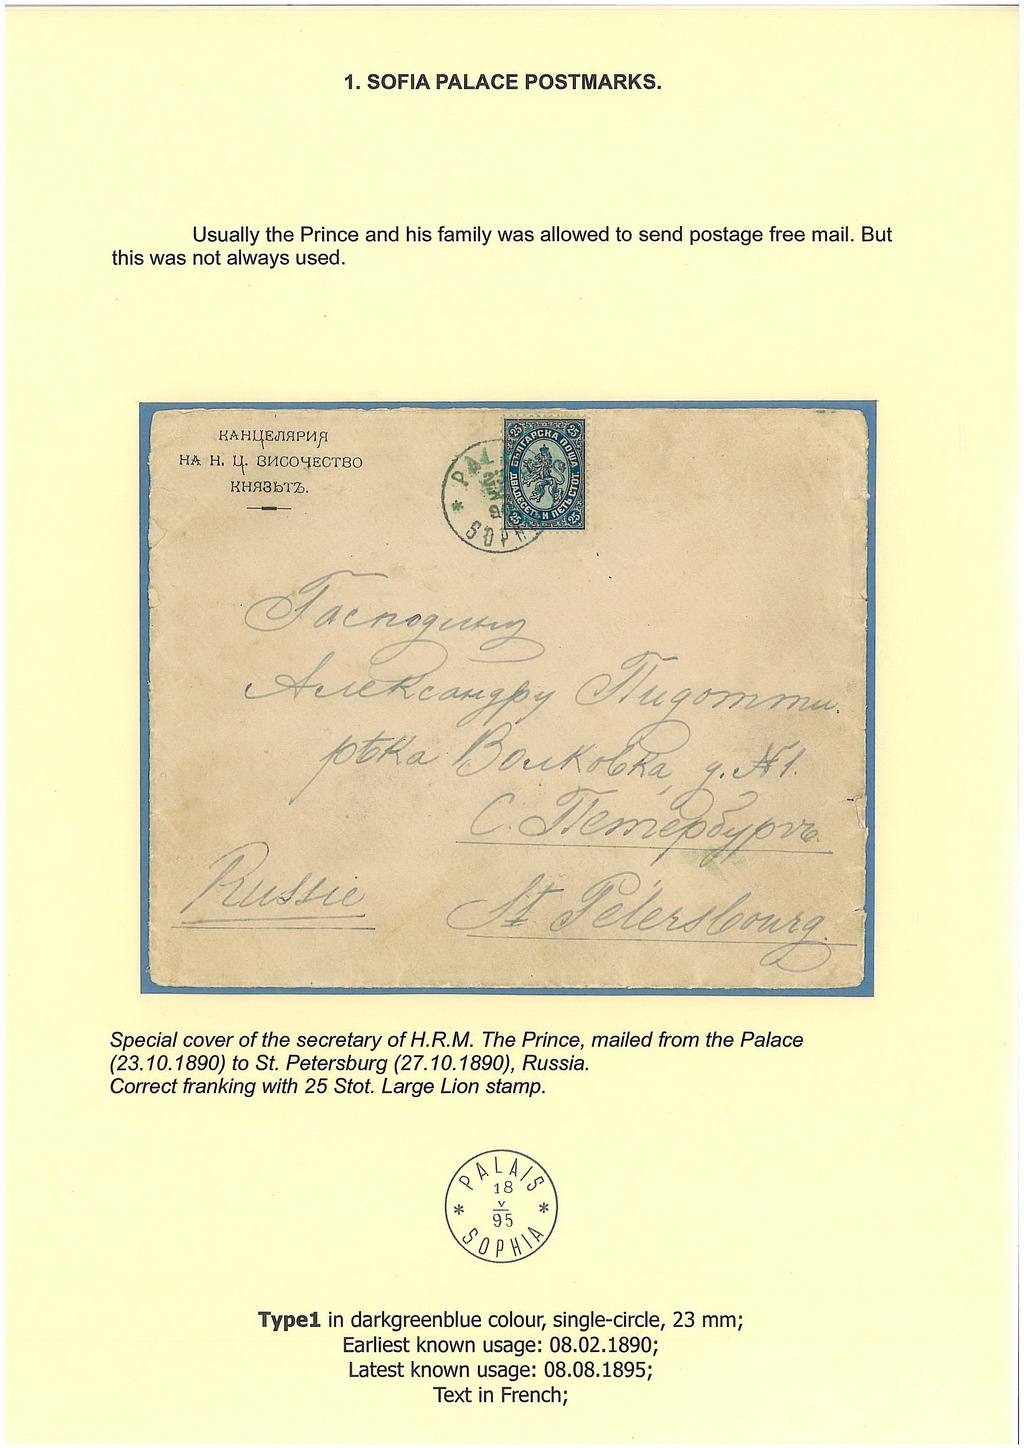 1. SOFIA PALACE POSTMARKS.
Usually the Prince and his family was allowed to send postage free mail. But
this was not always used.
КАНЦЕЛЯРИЯ
НА Н. Ц. ВИСОЧЕСТВО
КНЯЗЬТЪ.
PAL
SOPH
25 БЪЛГАРСКА ПОЩА 25
25 ДВАДЕСЕТЬ И ПЕТЬ СТОТ. 25
Господину
Александру Пидотти.
рѣка Волковка, д. № 1.
С. Петербургъ.
Russie
St Pétersbourg.
Special cover of the secretary of H.R.M. The Prince, mailed from the Palace
(23.10.1890) to St. Petersburg (27.10.1890), Russia.
Correct franking with 25 Stot. Large Lion stamp.
PALAIS
18
V
95
* *
SOPHIA
Type1 in darkgreenblue colour, single-circle, 23 mm;
Earliest known usage: 08.02.1890;
Latest known usage: 08.08.1895;
Text in French;